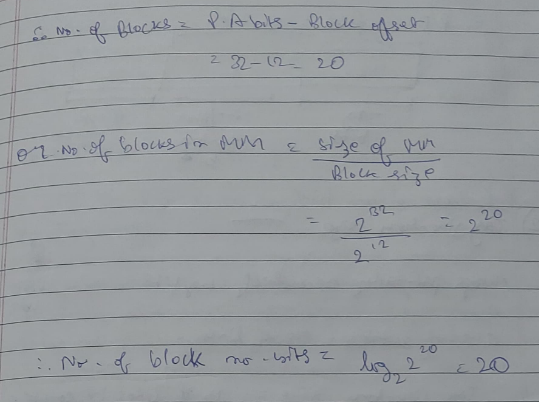 ∴ No. of Blocks = P.A bits - Block offset
= 32-12 = 20
or No. of blocks in MM = size of MM / Block size
= 2^32 / 2^12 = 2^20
∴ No. of block no-bits = log₂ 2^20 = 20